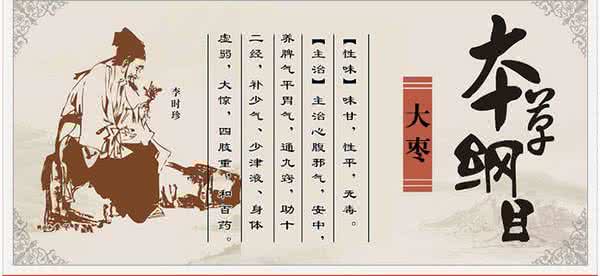 本草纲目
大枣
【性味】味甘，性平，无毒。
【主治】主治心腹邪气，安中，
养脾气平胃气，通九窍，助十
二经，补少气、少津液、身体
虚弱，大惊，四肢重，和百药。
李时珍